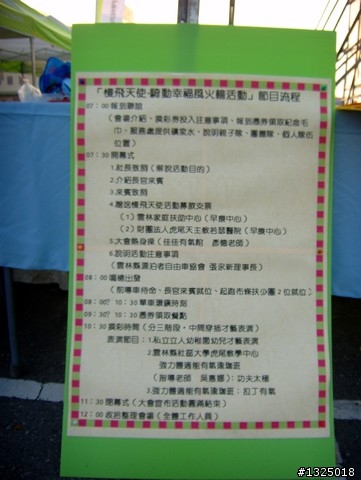 「慢飛天使-騎動幸福風火輪活動」節目流程
07：00 報到聯誼
（會場介紹、摸彩券投入注意事項、報到憑券領取紀念毛
巾、服務處提供礦泉水、說明親子隊、團體隊、個人隊伍
位置）
07：30 開幕式
1.社長致詞（簡說活動目的）
2.介紹長官來賓
3.來賓致詞
4.贈送慢飛天使活動募款支票
（1）雲林家庭扶助中心（早療中心）
（2）財團法人虎尾天主教若瑟醫院（早療中心）
5.大會熱身操（佳佳有氧館 老師）
6.說明活動注意事項
（雲林縣 自由車協會 張家新理事長）
08：00 鳴槍出發
（前導車待命、長官來賓就位、起跑布條扶少團2位就位）
08：00? 10：30 單車環鎮時刻
09：30? 10：30 憑券領取餐點
10：30 摸彩時間（分三階段，中間穿插才藝表演）
表演節目：1.私立立人幼稚園幼兒才藝表演
2.雲林縣社區大學虎尾教學中心
強力體適能有氧瑜珈班
（指導老師 吳惠娜）：功夫太極
3.強力體適能有氧瑜珈班：拉丁有氧
11：30 閉幕式（大會宣布活動圓滿結束）
12：00 收拾整理會場（全體工作人員）
#1325018